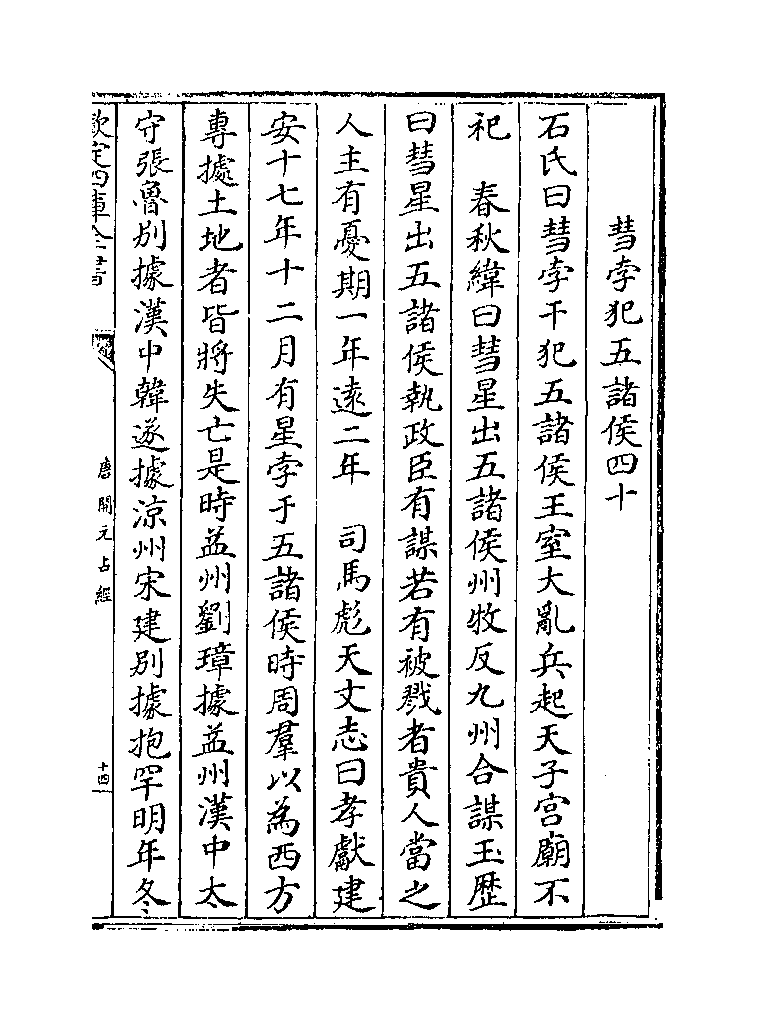 彗孛犯五諸侯四十
石氏曰彗孛干犯五諸侯王室大亂兵起天子宫廟不
祀　春秋緯曰彗星出五諸侯州牧反九州合謀玉歴
曰彗星出五諸侯執政臣有謀若有被戮者貴人當之
人主有憂期一年遠二年　司馬彪天文志曰孝獻建
安十七年十二月有星孛于五諸侯時周羣以為西方
專據土地者皆將失亡是時益州劉璋據益州漢中太
守張魯别據漢中韓遂據涼州宋建别據抱罕明年冬
欽定四庫全書
唐開元占經
十四